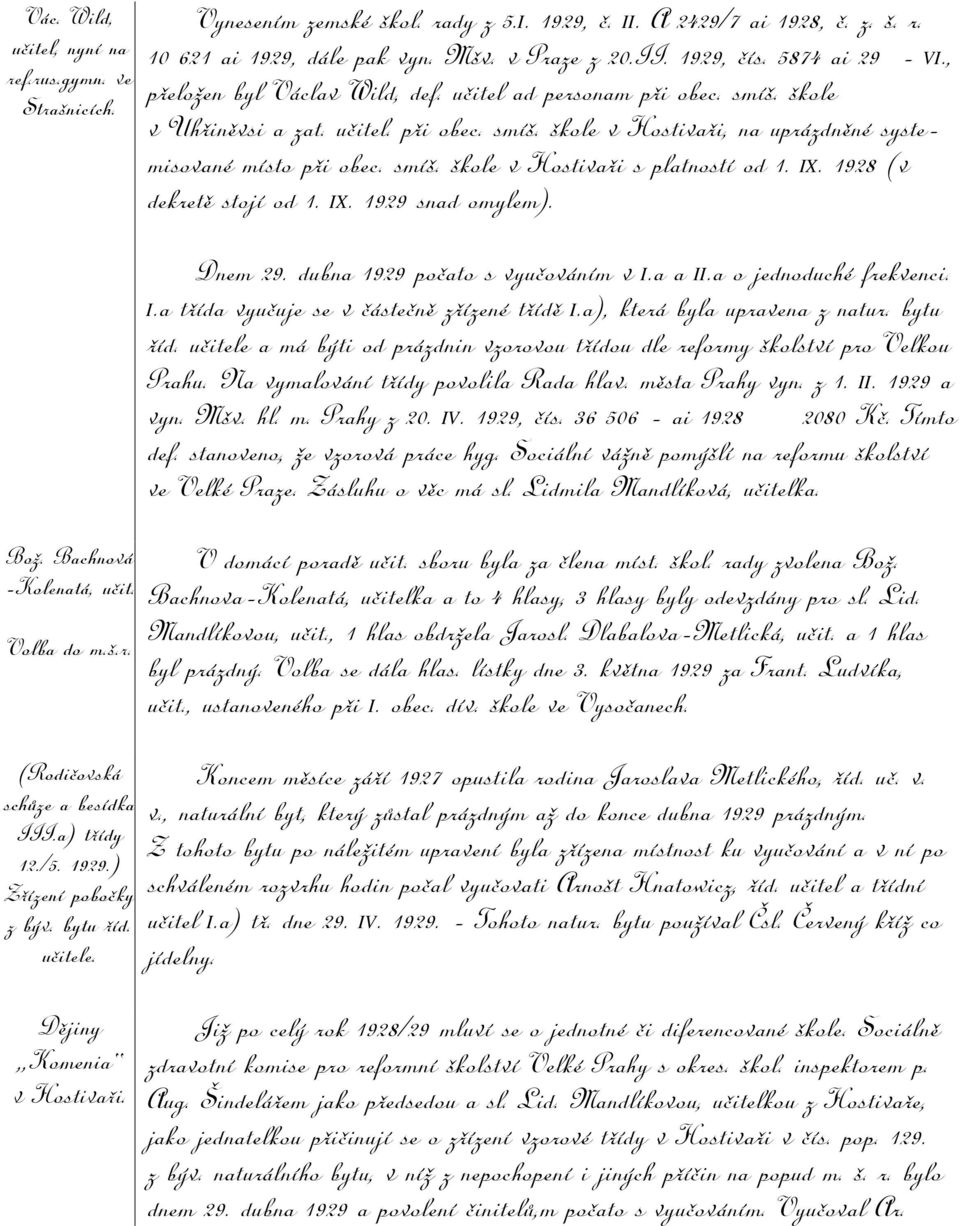 Vác. Wild,
učitel, nyní na
ref.rus.gymn. ve
Strašnicích.
Vynesením zemské škol. rady z 5.I. 1929, č. II. A 2429/7 ai 1928, č. z. š. r.
10 621 ai 1929, dále pak vyn. Mšv. v Praze z 20.II. 1929, čís. 5874 ai 29 - VI.,
přeložen byl Václav Wild, def. učitel ad personam při obec. smíš. škole
v Uhřiněvsi a zat. učitel. při obec. smíš. škole v Hostivaři, na uprázdněné syste-
misované místo při obec. smíš. škole v Hostivaři s platností od 1. IX. 1928 (v
dekretě stojí od 1. IX. 1929 snad omylem).
Dnem 29. dubna 1929 počato s vyučováním v I.a a II.a o jednoduché frekvenci.
I.a třída vyučuje se v částečně zřízené třídě I.a), která byla upravena z natur. bytu
říd. učitele a má býti od prázdnin vzorovou třídou dle reformy školství pro Velkou
Prahu. Na vymalování třídy povolila Rada hlav. města Prahy vyn. z 1. II. 1929 a
vyn. Mšv. hl. m. Prahy z 20. IV. 1929, čís. 36 506 - ai 1928 2080 Kč. Tímto
def. stanoveno, že vzorová práce hyg. Sociální vážně pomýšlí na reformu školství
ve Velké Praze. Zásluhu o věc má sl. Lidmila Mandlíková, učitelka.
Bož. Bachnová
-Kolenatá, učit.
Volba do m.š.r.
V domácí poradě učit. sboru byla za člena míst. škol. rady zvolena Bož.
Bachnova-Kolenatá, učitelka a to 4 hlasy, 3 hlasy byly odevzdány pro sl. Lid.
Mandlíkovou, učit., 1 hlas obdržela Jarosl. Dlabalova-Metlická, učit. a 1 hlas
byl prázdný. Volba se dála hlas. lístky dne 3. května 1929 za Frant. Ludvíka,
učit., ustanoveného při I. obec. dív. škole ve Vysočanech.
(Rodičovská
schůze a besídka
III.a) třídy
12./5. 1929.)
Zřízení pobočky
z býv. bytu říd.
učitele.
Koncem měsíce září 1927 opustila rodina Jaroslava Metlického, říd. uč. v.
v., naturální byt, který zůstal prázdným až do konce dubna 1929 prázdným.
Z tohoto bytu po náležitém upravení byla zřízena místnost ku vyučování a v ní po
schváleném rozvrhu hodin počal vyučovati Arnošt Hnatowicz, říd. učitel a třídní
učitel I.a) tř. dne 29. IV. 1929. - Tohoto natur. bytu používal Čsl. Červený kříž co
jídelny.
Dějiny
„Komenia“
v Hostivaři.
Již po celý rok 1928/29 mluví se o jednotné či diferencované škole. Sociálně
zdravotní komise pro reformní školství Velké Prahy s okres. škol. inspektorem p.
Aug. Šindelářem jako předsedou a sl. Lid. Mandlíkovou, učitelkou z Hostivaře,
jako jednatelkou přičinují se o zřízení vzorové třídy v Hostivaři v čís. pop. 129.
z býv. naturálního bytu, v níž z nepochopení i jiných příčin na popud m. š. r. bylo
dnem 29. dubna 1929 a povolení činitelů,m počato s vyučováním. Vyučoval Ar.